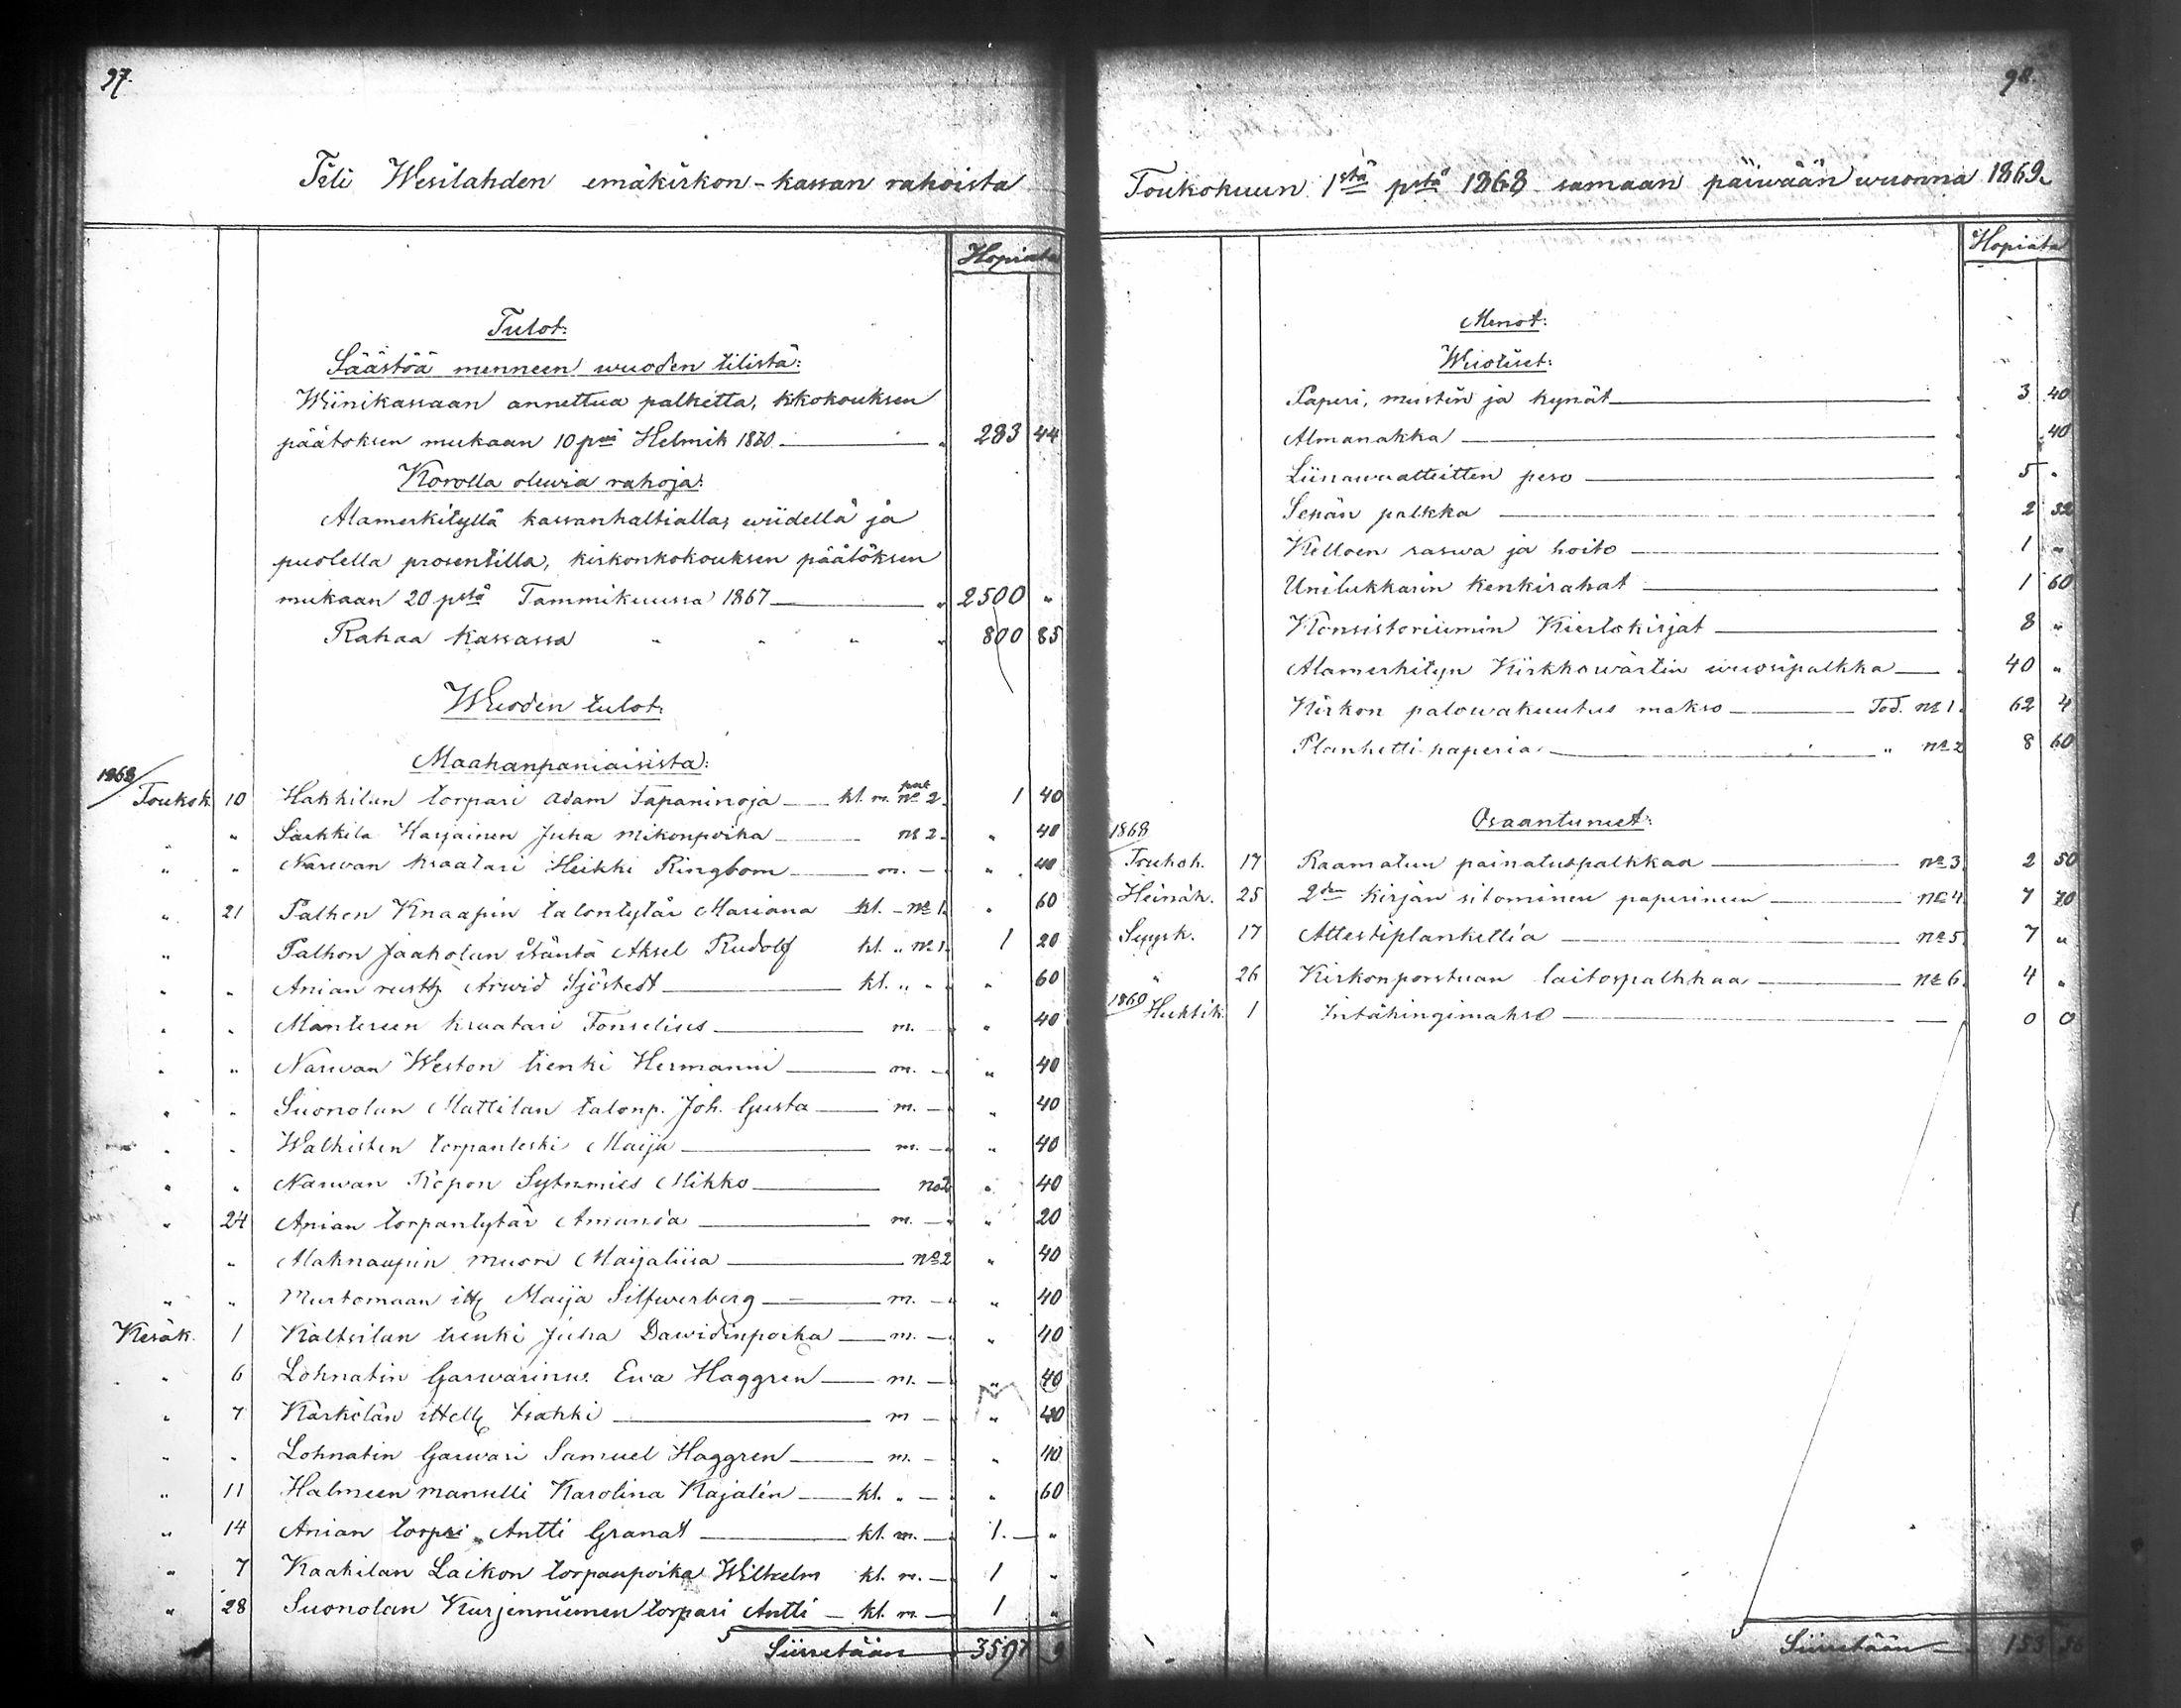 97.
Tili Wesilahden emäkirkon-kassan rahoista
Hopiata
Tulot:
Säästöä menneen wuoden tilistä:
Wiinikassaan annettua palketta, kkokouksen
päätöksen mukaan 10 pnä Helmik 1820 " 283 44
Korolla olewia rahoja:
Alamerkityllä kassanhaltialla, wiidellä ja
puolella prosentilla, kirkonkokouksen päätöksen
mukaan 20 pstä Tammikuussa 1867 " 2500 "
Rahaa kassassa " " " " 800 85
Wuoden tulot:
Maahanpaniaisista:
1868
Toukok. 10 Hakkilan torpari Adam Tapaninoja kl. m. No 2. 1 40
" " Sakkila Harjainen Juha Mikonpoika No 2. " 40
" " Narwan kraatari Heikki Ringbom m. — " 40
" 21 Palhon Knaapin talontytär Mariana kl. — No 1. " 60
" Palhon Jaakolan isäntä Aksel Rudolf kl. " No 1. 1 20
" " Anian rustt. Arwid Sjöstedt kl. " " " 60
" " Mantereen kraatari Fonselius m. — " 40
" " Narwan Weston trenki Hermanni m. — " 40
" " Suonolan Mattilan talonp. Joh. Gusta m. — " 40
" " Walkisten torpanleski Maija m. — " 40
" " Narwan Repon Sytnmies Mikko No 2 " 40
" 24 Anian torpantytär Amanda m. — " 20
" Alaknaapin muori Maijaliisa No 2 " 40
" " Murtomaan itt. Maija Silfwerberg m. — " 40
Kesäk. 1 Kaltsilan trenki Juha Dawidinpoika m. — " 40
" 6 Lohnatin Garwarinw. Ewa Haggren m. — " 40
" 7 Kärkölän ittell. Isakki m — " 40
" " Lohnatin Garwari Samuel Haggren m. — " 40
" 11 Halmeen mamselli Karolina Kajalén kl. " — " 60
" 14 Anian torpri " Antti Granat kl. m. — 1. — "
" 7 Kaakilan Laikon torpanpoika Wilhelm kl. m. — 1 "
" 28 Suonolan Kurjenniemen torpari Antti — kl. m. — 1 "
Siirretään 3597 9
98.
Toukokuun 1stä pstä 1868 samaan päiwään wuonna 1869.
Hopiata
Menot:
Wuotiset:
Paperi, mustin ja kynät 3 40
Almanakka " 40
Liinawaatteitten peso 5 "
Sepän palkka 2 32
Kelloen raswa ja hoito 1 "
Unilukkarin kenkirahat 1 60
Konsistoriumin Kiertokirjat 8 "
Alamerkityn Kirkkowärtin wuosipalkka 40 "
Kirkon palowakuutus makso Tod. No 1. 62 4
Planketti paperia " No 2 8 60
Osaantuneet:
1868
Toukok. 17 Raamatun painatuspalkkaa No 3. 2 50
Heinäk. 25 2den kirjan sitominen paperineen No 4. 7 70
Syysk. 17 Attestiplankettia No 5. 7 "
" 26 Kirkonporstuan laitospalkkaa No 6. 4 "
1869 Huhtik. 1 Intähingimakso 0 0
Siirretään 153 56